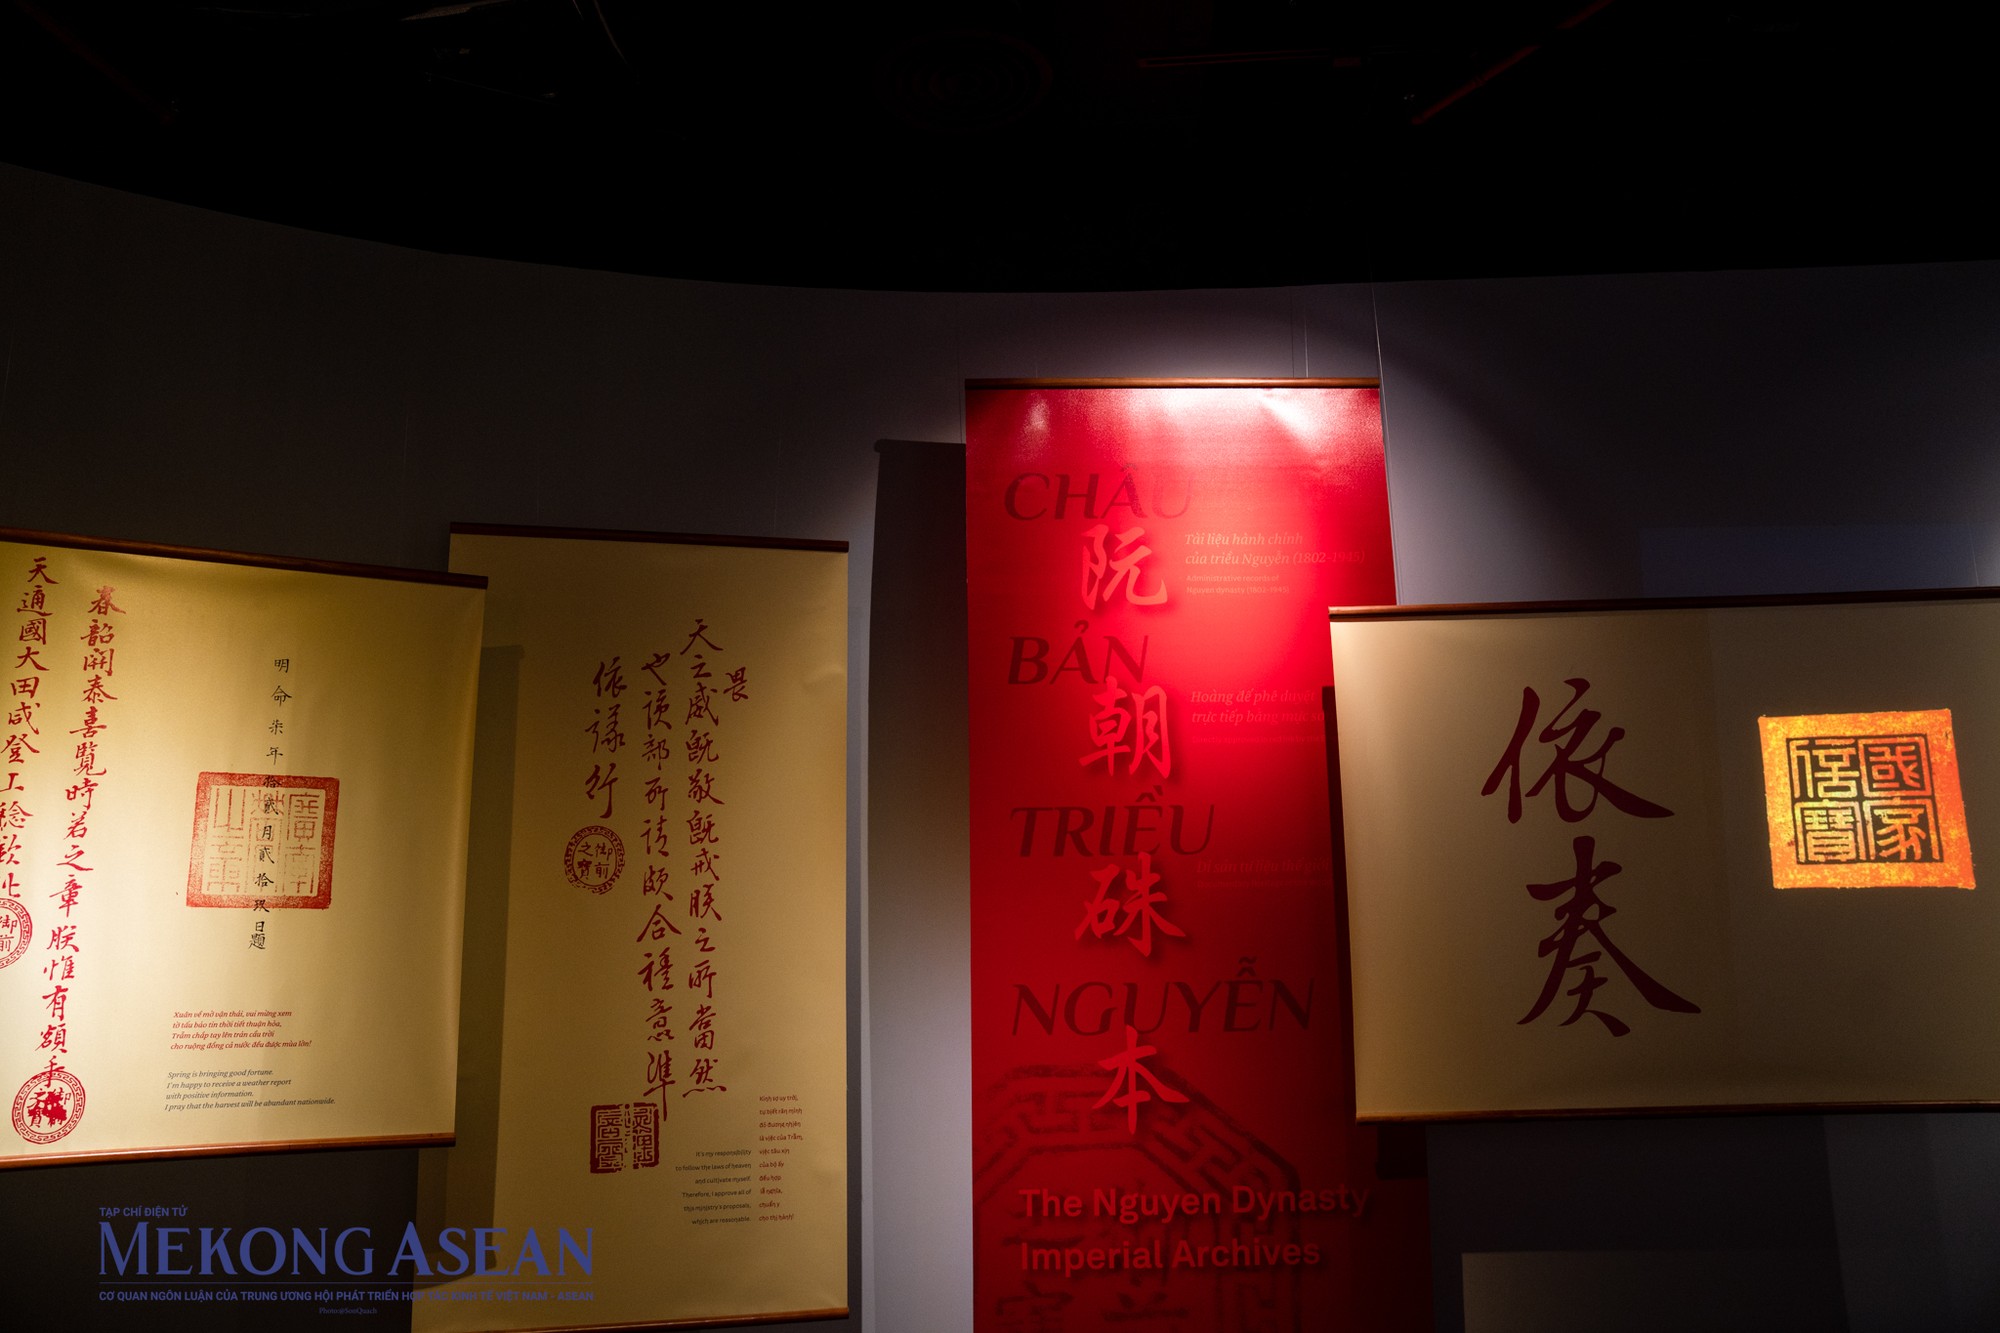 明命柒年拾貳月貳拾玖日題
春韶開泰喜覽時若之章朕惟有額手
天通國大田咸登上稔欽此
御前
Xuân về mở vận thái, vui mừng xem
tờ tấu báo tin thời tiết thuận hòa,
Trẫm chắp tay lên trán cầu trời
cho ruộng đồng cả nước đều được mùa lớn!
Spring is bringing good fortune.
I'm happy to receive a weather report
with positive information.
I pray that the harvest will be abundant nationwide.
畏
天之威既敬既戒朕之所當然
也該部所請頗合禮意準
依議行
御前之寶
It's my responsibility
to follow the laws of heaven
and cultivate myself.
Therefore, I approve all of
this ministry's proposals,
which are reasonable.
Kính sợ uy trời,
tự biết răn mình
đó đương nhiên
là việc của Trẫm,
việc tâu xin
của bộ ấy
đều hợp
lễ nghĩa,
chuẩn y
cho thi hành!
CHÂU
BẢN
TRIỀU
NGUYỄN
阮朝硃本
Tài liệu hành chính
của triều Nguyễn (1802-1945)
Administrative records of
Nguyen dynasty (1802-1945)
Hoàng đế phê duyệt
trực tiếp bằng mực
Di sản tư liệu thế giới
The Nguyen Dynasty
Imperial Archives
依奏
國家信寶
TẠP CHÍ ĐIỆN TỬ
MEKONG ASEAN
CƠ QUAN NGÔN LUẬN CỦA TRUNG ƯƠNG HỘI PHÁT TRIỂN HỢP TÁC KINH TẾ VIỆT NAM - ASEAN
Photo@SonQuach